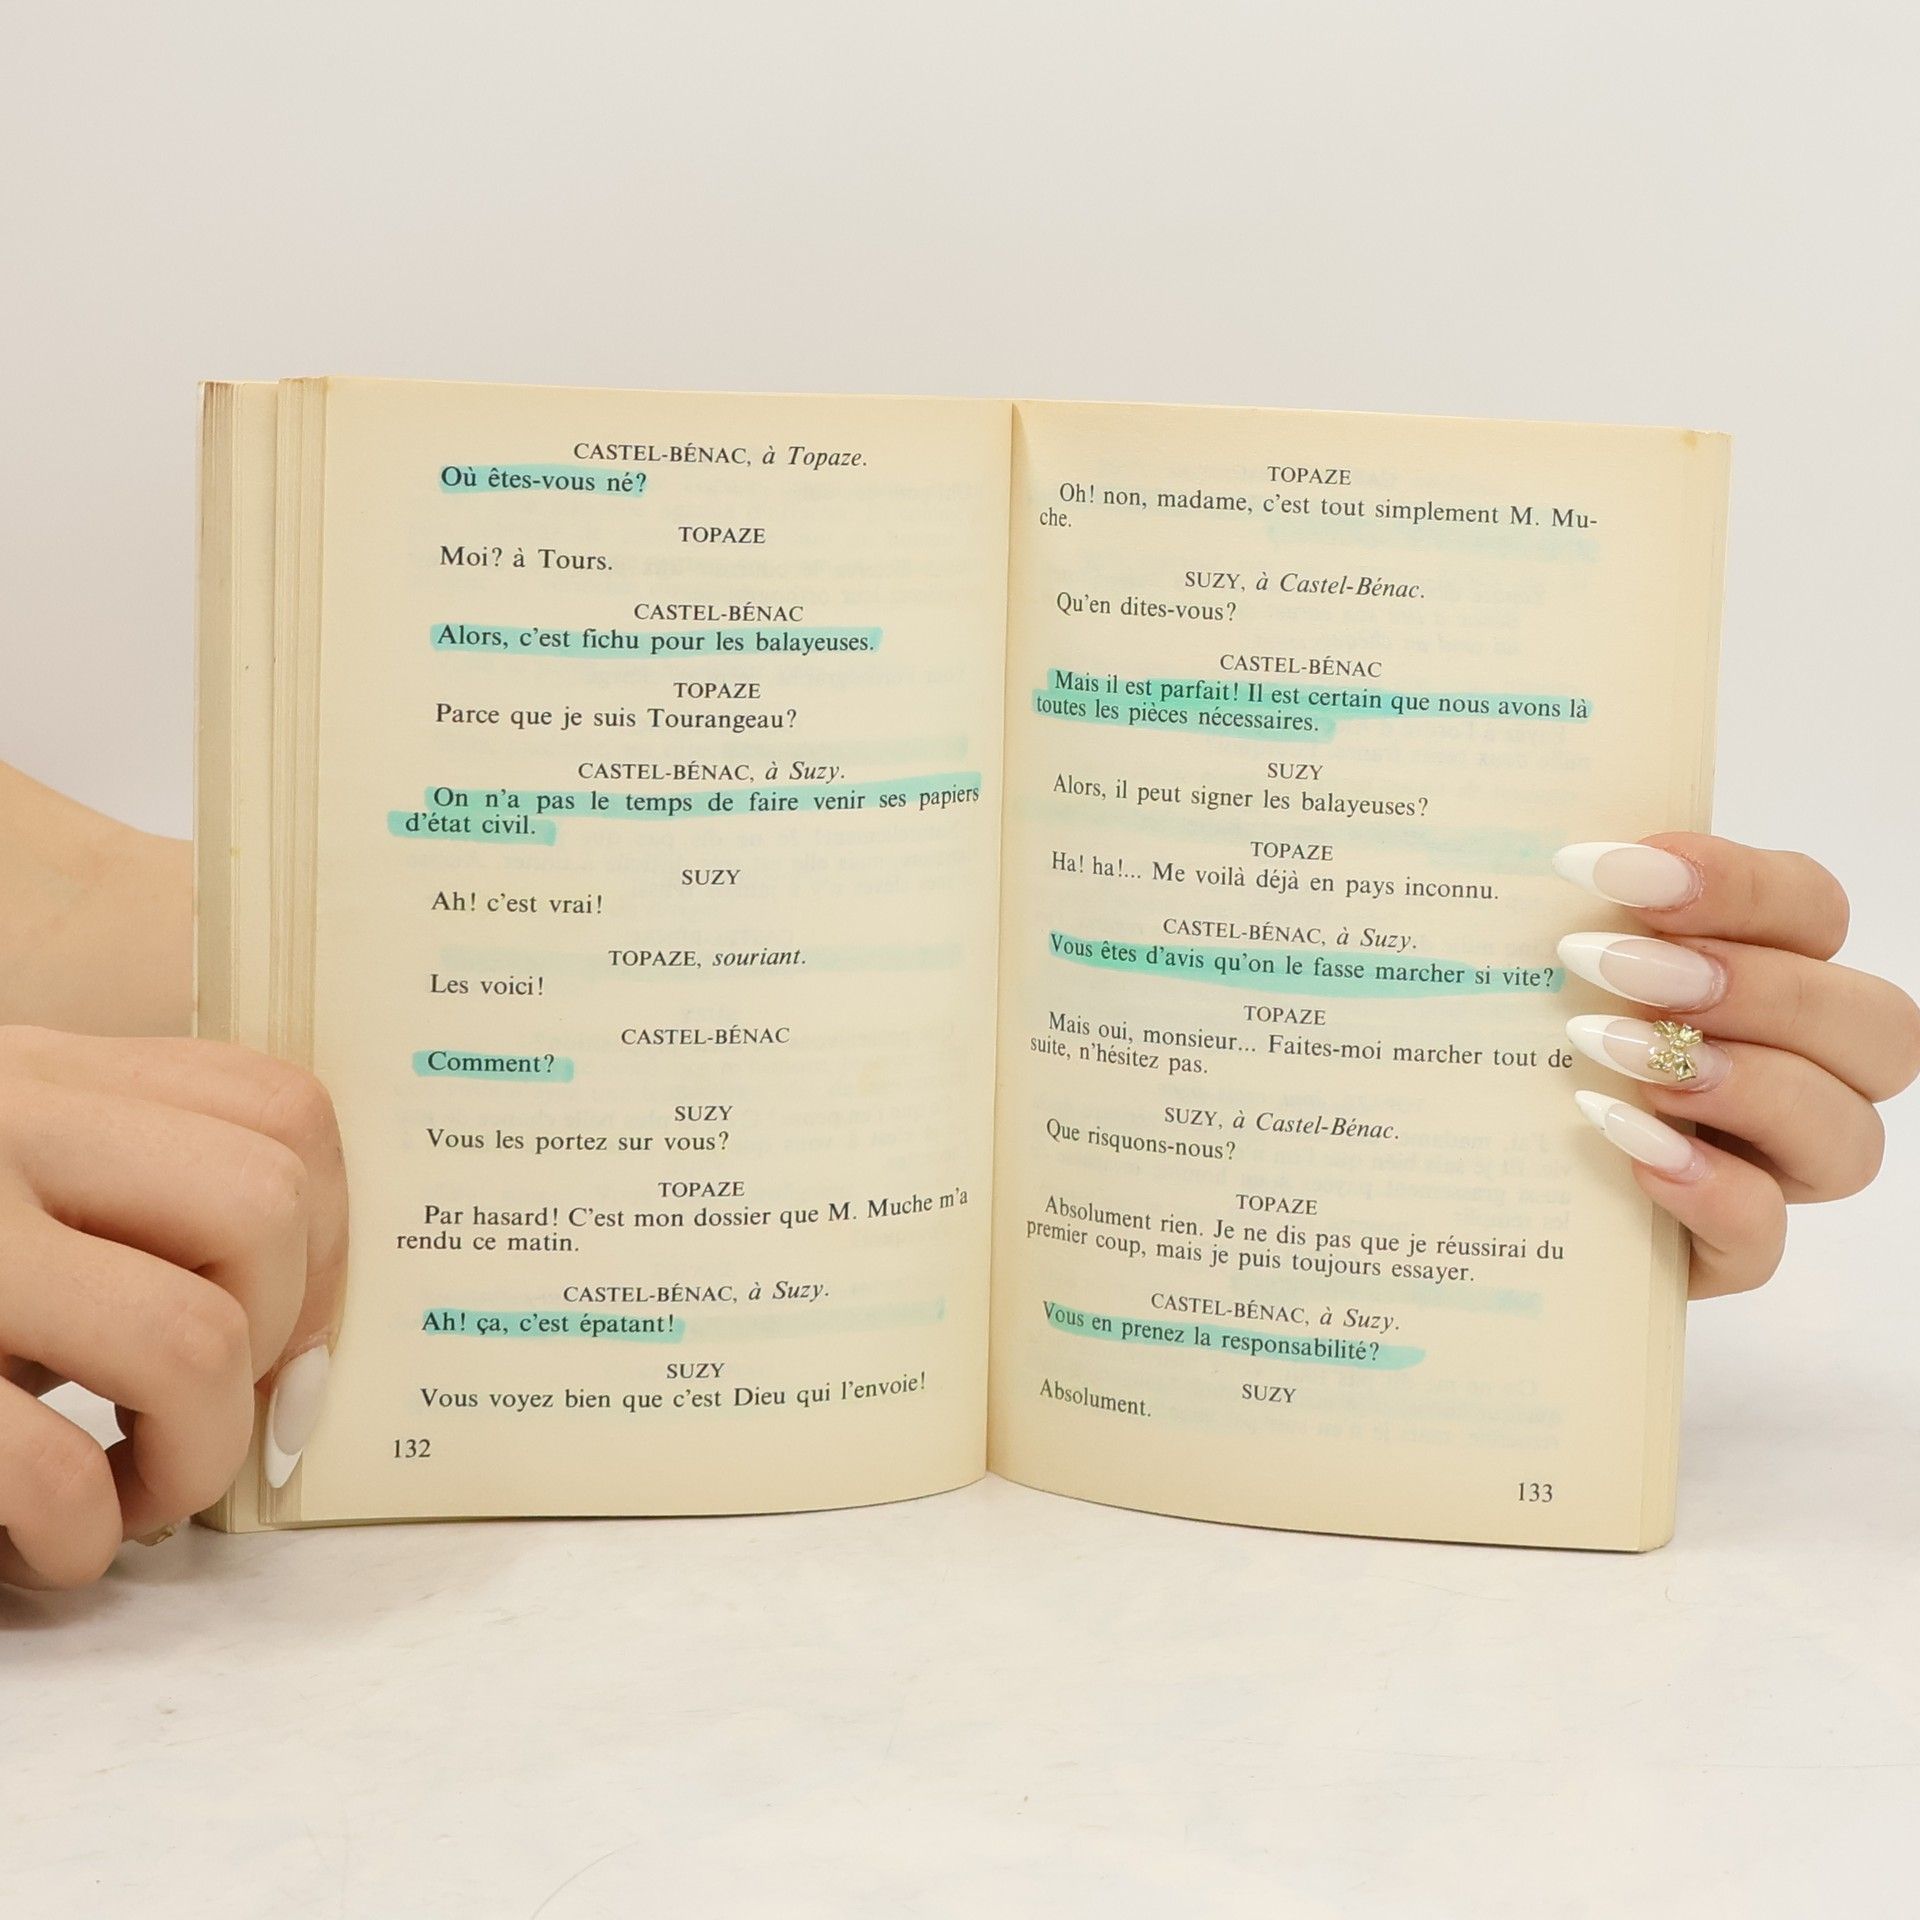 CASTEL-BÉNAC, à Topaze.
Où êtes-vous né?
TOPAZE
Moi? à Tours.
CASTEL-BÉNAC
Alors, c'est fichu pour les balayeuses.
TOPAZE
Parce que je suis Tourangeau?
CASTEL-BÉNAC, à Suzy.
On n'a pas le temps de faire venir ses papiers
d'état civil.
SUZY
Ah! c'est vrai!
TOPAZE, souriant.
Les voici!
CASTEL-BÉNAC
Comment?
SUZY
Vous les portez sur vous?
TOPAZE
Par hasard! C'est mon dossier que M. Muche m'a
rendu ce matin.
CASTEL-BÉNAC, à Suzy.
Ah! ça, c'est épatant!
SUZY
Vous voyez bien que c'est Dieu qui l'envoie!
132
TOPAZE
Oh! non, madame, c'est tout simplement M. Mu-
che.
SUZY, à Castel-Bénac.
Qu'en dites-vous?
CASTEL-BÉNAC
Mais il est parfait! Il est certain que nous avons là
toutes les pièces nécessaires.
SUZY
Alors, il peut signer les balayeuses?
TOPAZE
Ha! ha!... Me voilà déjà en pays inconnu.
CASTEL-BÉNAC, à Suzy.
Vous êtes d'avis qu'on le fasse marcher si vite?
TOPAZE
Mais oui, monsieur... Faites-moi marcher tout de
suite, n'hésitez pas.
SUZY, à Castel-Bénac.
Que risquons-nous?
TOPAZE
Absolument rien. Je ne dis pas que je réussirai du
premier coup, mais je puis toujours essayer.
CASTEL-BÉNAC, à Suzy.
Vous en prenez la responsabilité?
SUZY
Absolument.
133